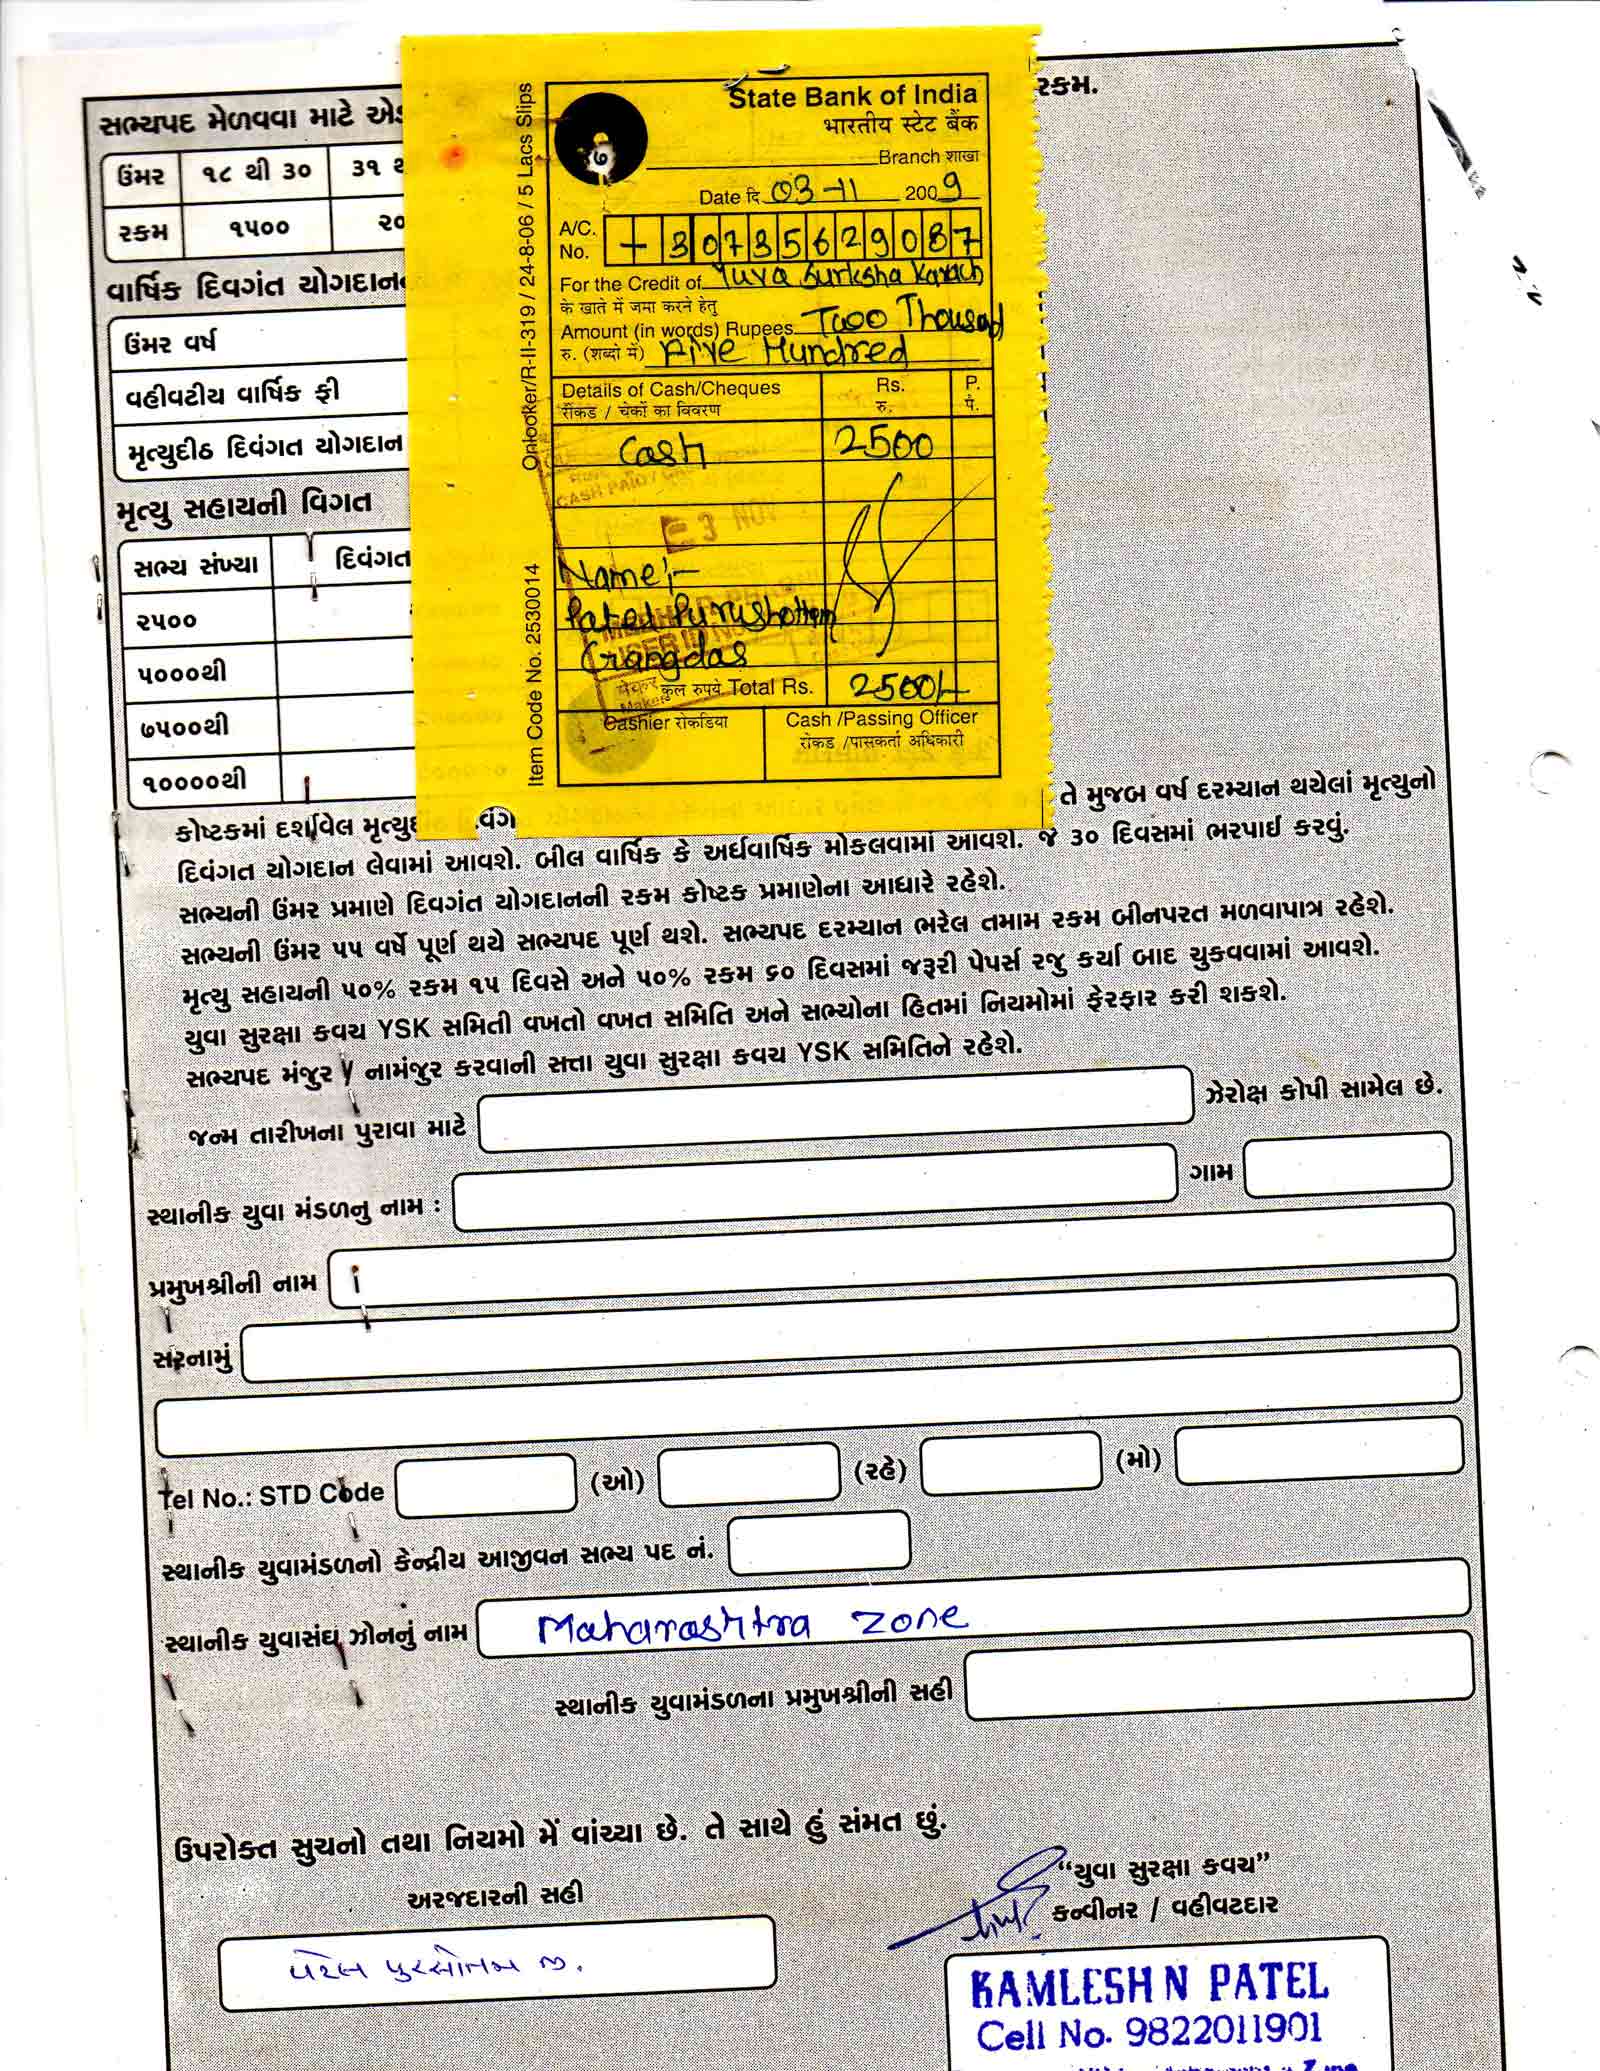 સભ્યપદ મેળવવા માટે
રકમ.
ઉંમર ૧૮ થી ૩૦ ૩૧
રકમ ૧૫૦૦ ૨૦
વાર્ષિક દિવગંત
ઉંમર વર્ષ
વહીવટીય વાર્ષિક ફી
મૃત્યુદીઠ દિવંગત યોગદાન
મૃત્યુ સહાયની વિગત
સભ્ય સંખ્યા દિવંગત
૨૫૦૦
૫૦૦૦થી
૭૫૦૦થી
૧૦૦૦૦થી
Item Code No. 2530014 Onlooker/R-II-319 / 24-8-06 / 5 Lacs Slips
State Bank of India
भारतीय स्टेट बैंक
Branch शाखा
Date दि 03-11 2009
A/C. No. 30735629087
For the Credit of Yuva Surksha Kavach
के खाते में जमा करने हेतु
Amount (in words) Rupees Two Thousand
रु. (शब्दो में) Five Hundred
Details of Cash/Cheques Rs. P.
रोकड / चेकों का विवरण रु. पै.
Cash 2500
3 NOV
Name:-
Patel Purushottam
Gangdas
कुल रुपये Total Rs. 2500/-
Cashier रोकडिया Cash /Passing Officer
रोकड /पासकर्ता अधिकारी
તે મુજબ વર્ષ દરમ્યાન થયેલાં મૃત્યુનો
કોષ્ટકમાં દર્શાવેલ
દિવંગત યોગદાન લેવામાં આવશે. બીલ વાર્ષિક કે અર્ધવાર્ષિક મોકલવામાં આવશે. જે ૩૦ દિવસમાં ભરપાઈ કરવું.
સભ્યની ઉંમર પ્રમાણે દિવગંત યોગદાનની રકમ કોષ્ટક પ્રમાણેના આધારે રહેશે.
સભ્યની ઉંમર ૫૫ વર્ષે પૂર્ણ થયે સભ્યપદ પૂર્ણ થશે. સભ્યપદ દરમ્યાન ભરેલ તમામ રકમ બીનપરત મળવાપાત્ર રહેશે.
મૃત્યુ સહાયની ૫૦% રકમ ૧૫ દિવસે અને ૫૦% રકમ ૬૦ દિવસમાં જરૂરી પેપર્સ રજુ કર્યા બાદ ચુકવવામાં આવશે.
યુવા સુરક્ષા કવચ YSK સમિતી વખતો વખત સમિતિ અને સભ્યોના હિતમાં નિયમોમાં ફેરફાર કરી શકશે.
સભ્યપદ મંજુર / નામંજુર કરવાની સત્તા યુવા સુરક્ષા કવચ YSK સમિતિને રહેશે.
જન્મ તારીખના પુરાવા માટે ઝેરોક્ષ કોપી સામેલ છે.
સ્થાનીક યુવા મંડળનુ નામ : ગામ
પ્રમુખશ્રીની નામ
સરનામું
Tel No.: STD Code (ઓ) (રહે) (મો)
સ્થાનીક યુવામંડળનો કેન્દ્રીય આજીવન સભ્ય પદ નં.
સ્થાનીક યુવાસંઘ ઝોનનું નામ Maharashtra Zone
સ્થાનીક યુવામંડળના પ્રમુખશ્રીની સહી
ઉપરોક્ત સુચનો તથા નિયમો મેં વાંચ્યા છે. તે સાથે હું સંમત છું.
અરજદારની સહી
પટેલ પુરસોતમ જી.
"યુવા સુરક્ષા કવચ"
કન્વીનર / વહીવટદાર
KAMLESH N PATEL
Cell No. 9822011901